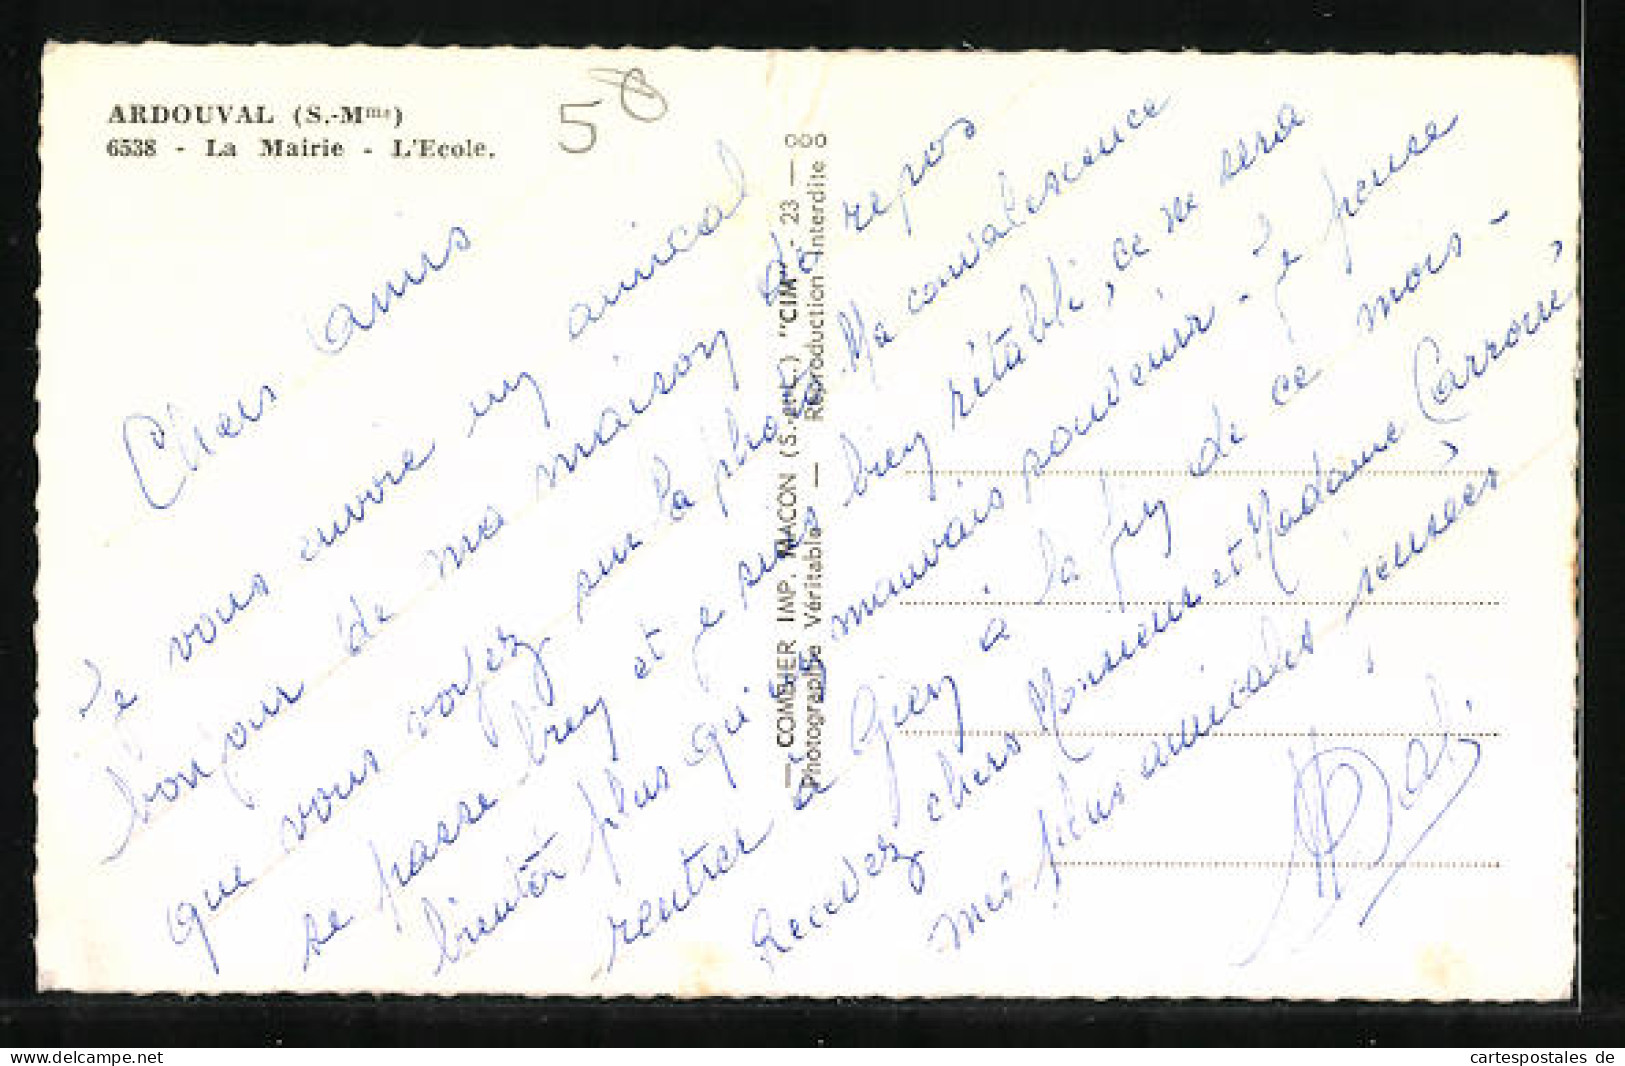 ARDOUVAL (S.-Mme)
6538 - La Mairie - L'Ecole.
58
Chers amis
Je vous envoie un amical
bonjour de ma maison de repos
que vous voyez sur la photo. Ma convalescence
se passe bien et je suis bien rétabli, ce ne sera
bientôt plus qu'un mauvais souvenir - Je pense
rentrer à Gien à la fin de ce mois -
Recevez chers Monsieur et Madame Carroué,
mes plus amicales pensées
— COMBIER IMP. MACON (S.-et-L.) "CIM" - 23 — 000
Photographie Véritable — Reproduction Interdite
cartespostales.de
cartespostales de